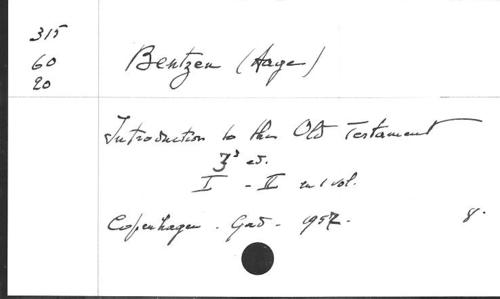 315
60
20
Bentzen (Aage)
Introduction to the Old Testament
3ᵈ ed.
I - II in 1 vol.
Copenhagen. Gad. 1957. 8.